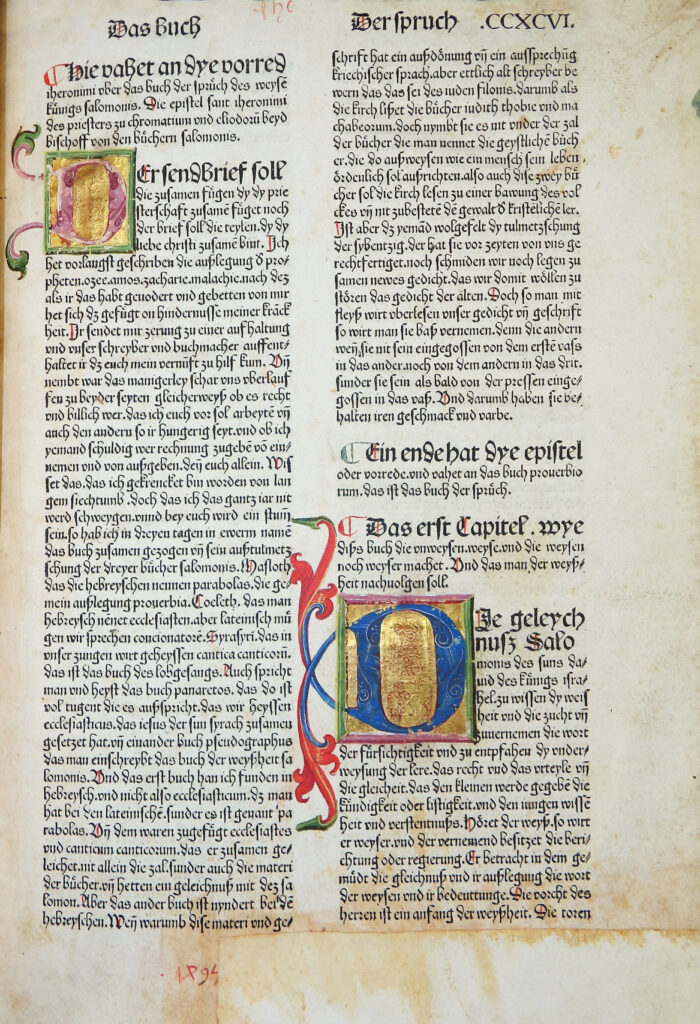 Das buch
Der spruch .CCXCVI.
Hie vahet an dye vorred
iheronimi vber das buch der sprüch des weysē
künigs salomonis. Die epistel sant iheronimi
des priesters zu chromatium vnd eliodorū beyd
bischoff von den büchern salomonis.
Er sendBrief soll
die zusamen fügen dy dy prie
sterschaft zusamē füget noch
der brief soll die teylen. dy dy
liebe christi zusamē bint. Ich
het vorlangst geschriben die außlegung d̄ pro⸗
pheten. ozee. amos. zacharie. malachie. nach dez
als ir das habt gevodert vnd gebetten von mir
het sich dz gefügt on hindernusse meiner kräck
heit. Ir sendet mir zerung zu einer auf haltung
vnd vnser schreyber vnd buchmacher auffent⸗
haltet ir dz euch mein vernüft zu hilf kum. Vn̄
nembt war das manigerley schar vns vberlauf
fen zu beyder seyten gleicherweyß ob es recht
vnd billich wer. das ich euch vor sol arbeytē vn̄
auch den andern so ir hungerig seyt. vnd ob ich
yemand schuldig wer rechnung zugebē vō ein⸗
nemen vnd von außgeben. den̄ euch allein. Wis
set das. das ich gekrencket bin worden von lan
gem siechtumb. doch das ich das gantz iar nit
werd schweygen. vnnd bey euch wird ein stum̄
sein. so hab ich in dreyen tagen in ewerm namē
das buch zusamen gezogen vn̄ sein außtulmetz
schung der dreyer bücher salomonis. Masloth
das die hebreyschen nennen parabolas. die ge⸗
mein außlegung prouerbia. Coeleth. das man
hebreysch nēnet ecclesiasten. aber lateinsch mü
gen wir sprechen concionatorē. Syrasyri. das in
vnser zungen wirt geheyssen cantica canticorū.
das ist das buch des lobgesangs. Auch spricht
man vnd heyst das buch panaretos. das do ist
vol tugent die es außspricht. das wir heyssen
ecclesiasticus. das iesus der sun syrach zusamen
gesetzet hat. vn̄ einander buch pseudographus
das man einschreybt das buch der weyßheit sa
lomonis. Vnd das erst buch han ich funden in
hebreysch. vnd nicht also ecclesiasticum. dz man
hat bei den lateinschē. sunder es ist genant pa
rabolas. Vn̄ dem waren zugefügt ecclesiastes
vnd canticum canticorum. das er zusamen ge⸗
leichet. nit allein die zal. sunder auch die materi
der bücher. vn̄ hetten ein geleichnuß mit dez sa
lomon. Aber das ander buch ist nyndert bei dē
hebreyschen. Wen̄ warumb dise materi vnd ge⸗
schrift hat ein außdönung vn̄ ein aussprechūg
kriechischer sprach. aber ettlich alt schreyber be
wern das das sei des iuden filonis. darumb als
die kirch lißet die bücher iudith thobie vnd ma
chabeorum. doch nymbt sie es nit vnder der zal
der bücher die man nennet die geystlichē büch
er. die do außweysen wie ein mensch sein leben.
ordenlich sol aufrichten. also auch dise zwey bü
cher sol die kirch lesen zu einer bawung des vol
ckes vn̄ nit zubestetē dē gewalt d̄ kristēlichē ler.
Ist aber dz yemād wolgefelt dy tulmetzschung
der sybentzig. der hat sie vor zeyten von vns ge
rechtfertiget. noch schmiden wir noch legen zu
samen newes gedicht. das wir domit wöllen zu
stören das gedicht der alten. Doch so man mit
fleyß wirt vberlesen vnser gedicht vn̄ geschrift
so wirt man sie baß vernemen. denn die andern
wen̄. sie nit sein eingegossen von dem erstē vass
in das ander. noch von dem andern in das drit.
sunder sie sein als bald von der pressen einge⸗
gossen in das vaß. Vnd darumb haben sie be⸗
halten iren geschmack vnd varbe.
Ein ende hat dye epistel
oder vorrede. vnd vahet an das buch prouerbio
rum. das ist das buch der sprüch.
Das erst Capitel. wye
diß buch die vnweysen. weyse. vnd die weysen
noch weyser machet. Vnd das man der weyß⸗
heit nachuolgen soll.
Je geleych
nusz Salo
monis des suns da⸗
uid des künigs isra⸗
hel. zu wissen dy weis
heit vnd die zucht vn̄
zuuernemen die wort
der fürsichtigkeit vnd zu entpfahen dy vnder⸗
weysung der lere. das recht vnd das vrteyle vn̄
die gleicheit. das den kleinen werde gegeben die
kündigkeit oder listigkeit. vnd den iungen wissē
heit vnd verstentnuß. Höret der weyß. so wirt
er weyser. vnd der vernemend besitzet die beri⸗
chtung oder regierung. Er betracht in dem ge⸗
müdt die gleichnuß vnd ir außlegung die wort
der weysen vnd ir bedeuttunge. Die vorcht des
herren ist ein anfang der weyßheit. Die toren